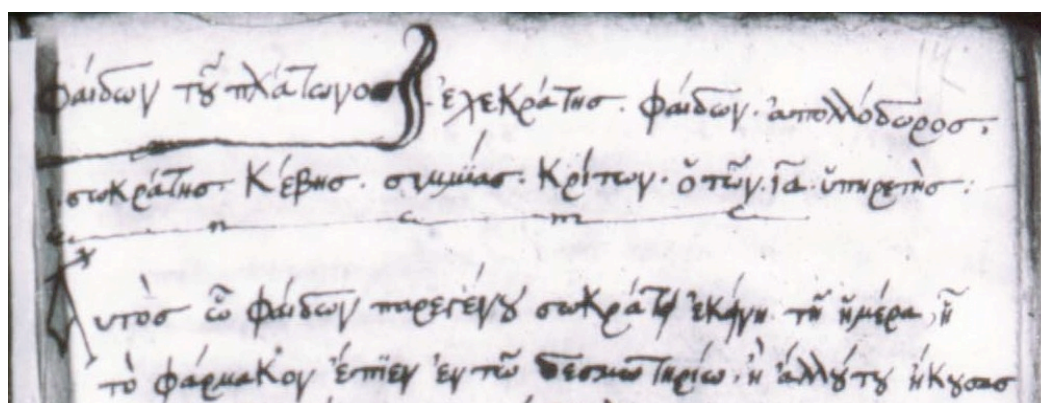 φαίδων τοῦ πλάτωνος ἐχεκράτης· φαίδων· ἀπολλόδωρος·
σωκράτης· Κέβης· σιμμίας· Κρίτων· ὁ τῶν ἕνδεκα ὑπηρέτης:
Αὐτὸς ὦ φαίδων παρεγένου σωκράτει ἐκείνῃ τῇ ἡμέρᾳ, ᾗ
τὸ φάρμακον ἔπιεν ἐν τῷ δεσμωτηρίῳ, ἢ ἄλλου του ἤκουσας